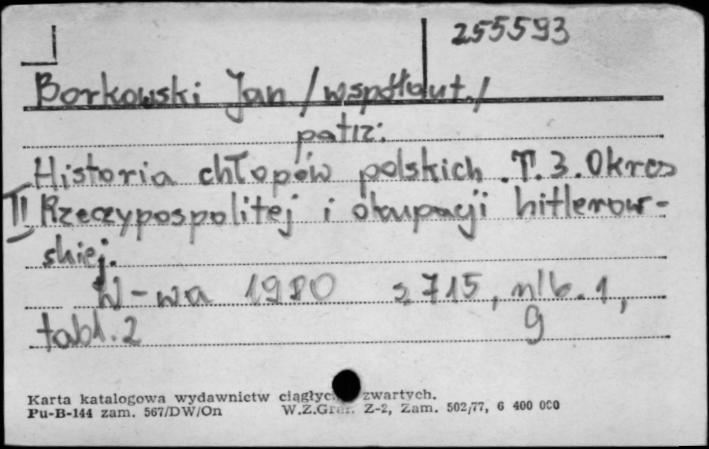 255593
Borkowski Jan /współaut./
patrz:
Historia chłopów polskich. T. 3. Okres
II Rzeczypospolitej i okupacji hitlerow-
skiej.
W-wa 1980 s 715, nlb. 1,
tabl. 2 g
Karta katalogowa wydawnictw ciągłyc zwartych.
Pu-B-144 zam. 567/DW/On W.Z.Graf. Z-2, Zam. 502/77, 6 400 000